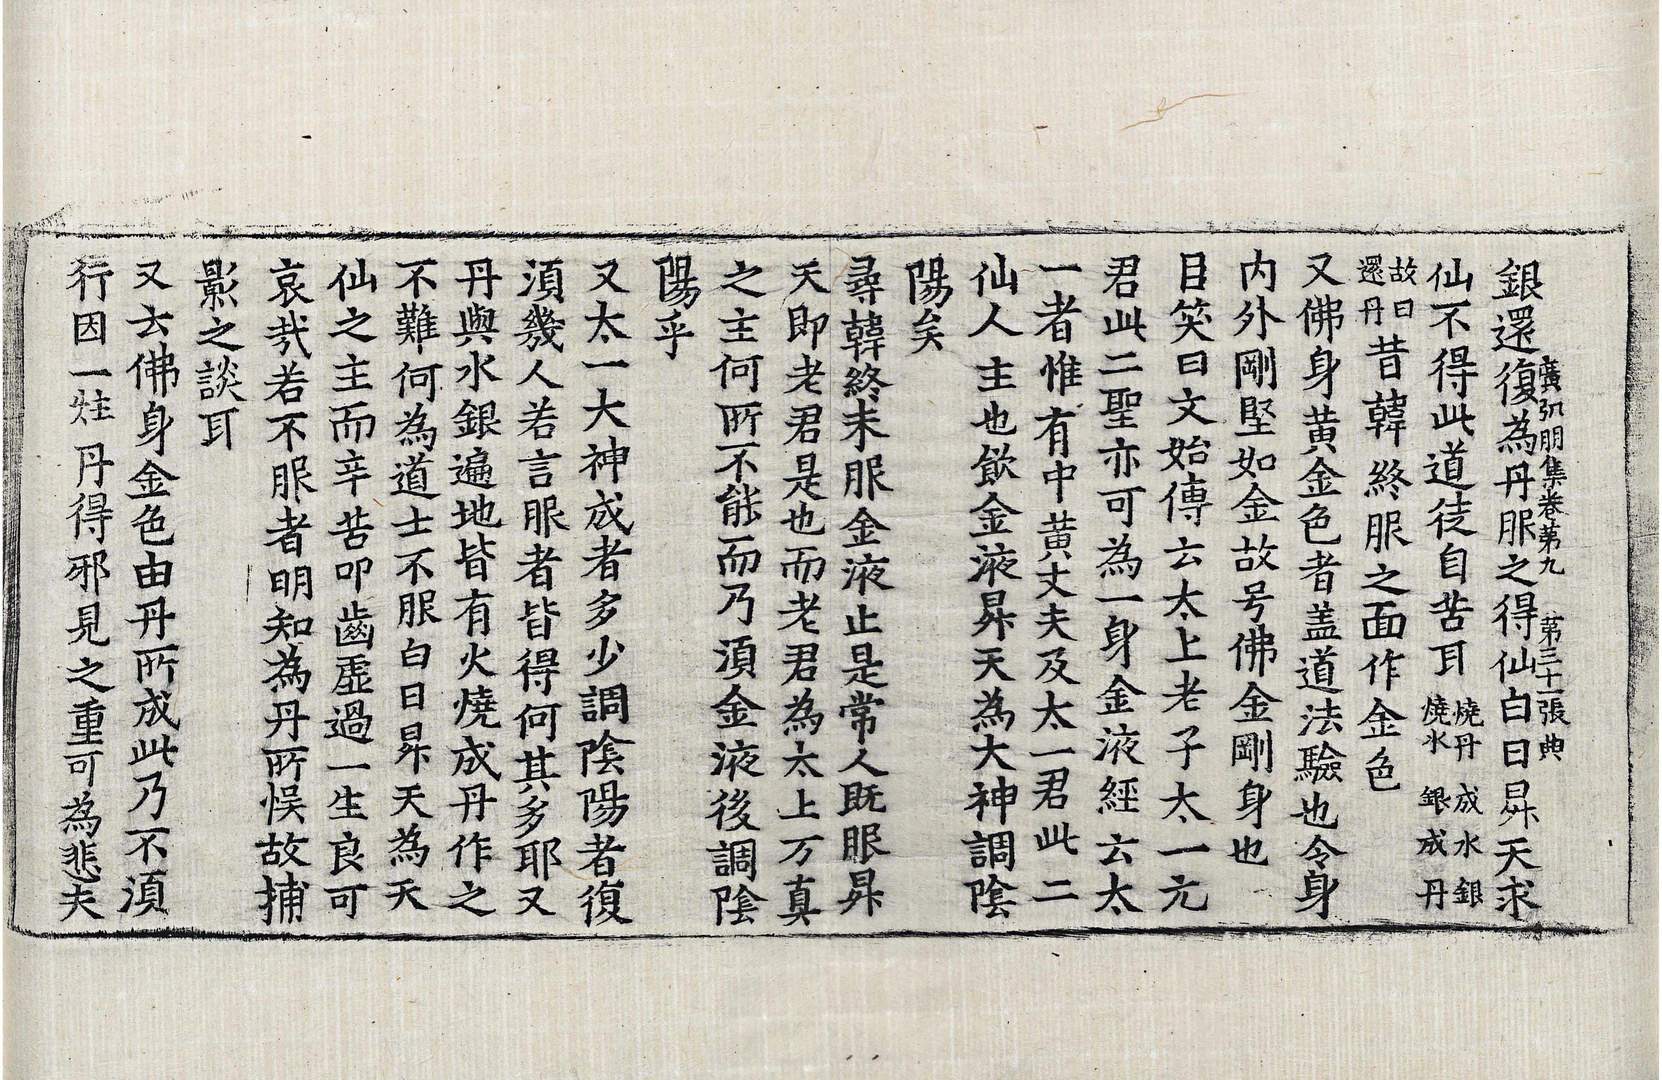 廣弘明集卷第九　第三十一張　典
銀還復為丹服之得仙白日昇天求
仙不得此道徒自苦耳燒丹成水銀燒水銀成丹
故曰還丹昔韓終服之面作金色
又佛身黄金色者盖道法驗也令身
内外剛堅如金故号佛金剛身也
目笑曰文始傳云太上老子太一元
君此二聖亦可為一身金液經云太
一者惟有中黄丈夫及太一君此二
仙人主也飲金液昇天為大神調陰
陽矣
尋韓終未服金液止是常人既服昇
天即老君是也而老君為太上万真
之主何所不能而乃須金液後調陰
陽乎
又太一大神成者多少調陰陽者復
須幾人若言服者皆得何其多耶又
丹與水銀遍地皆有火燒成丹作之
不難何為道士不服白日昇天為天
仙之主而辛苦叩齒虛過一生良可
哀哉若不服者明知為丹所悮故捕
影之談耳
又云佛身金色由丹所成此乃不須
行因一炷丹得邪見之重可為悲夫